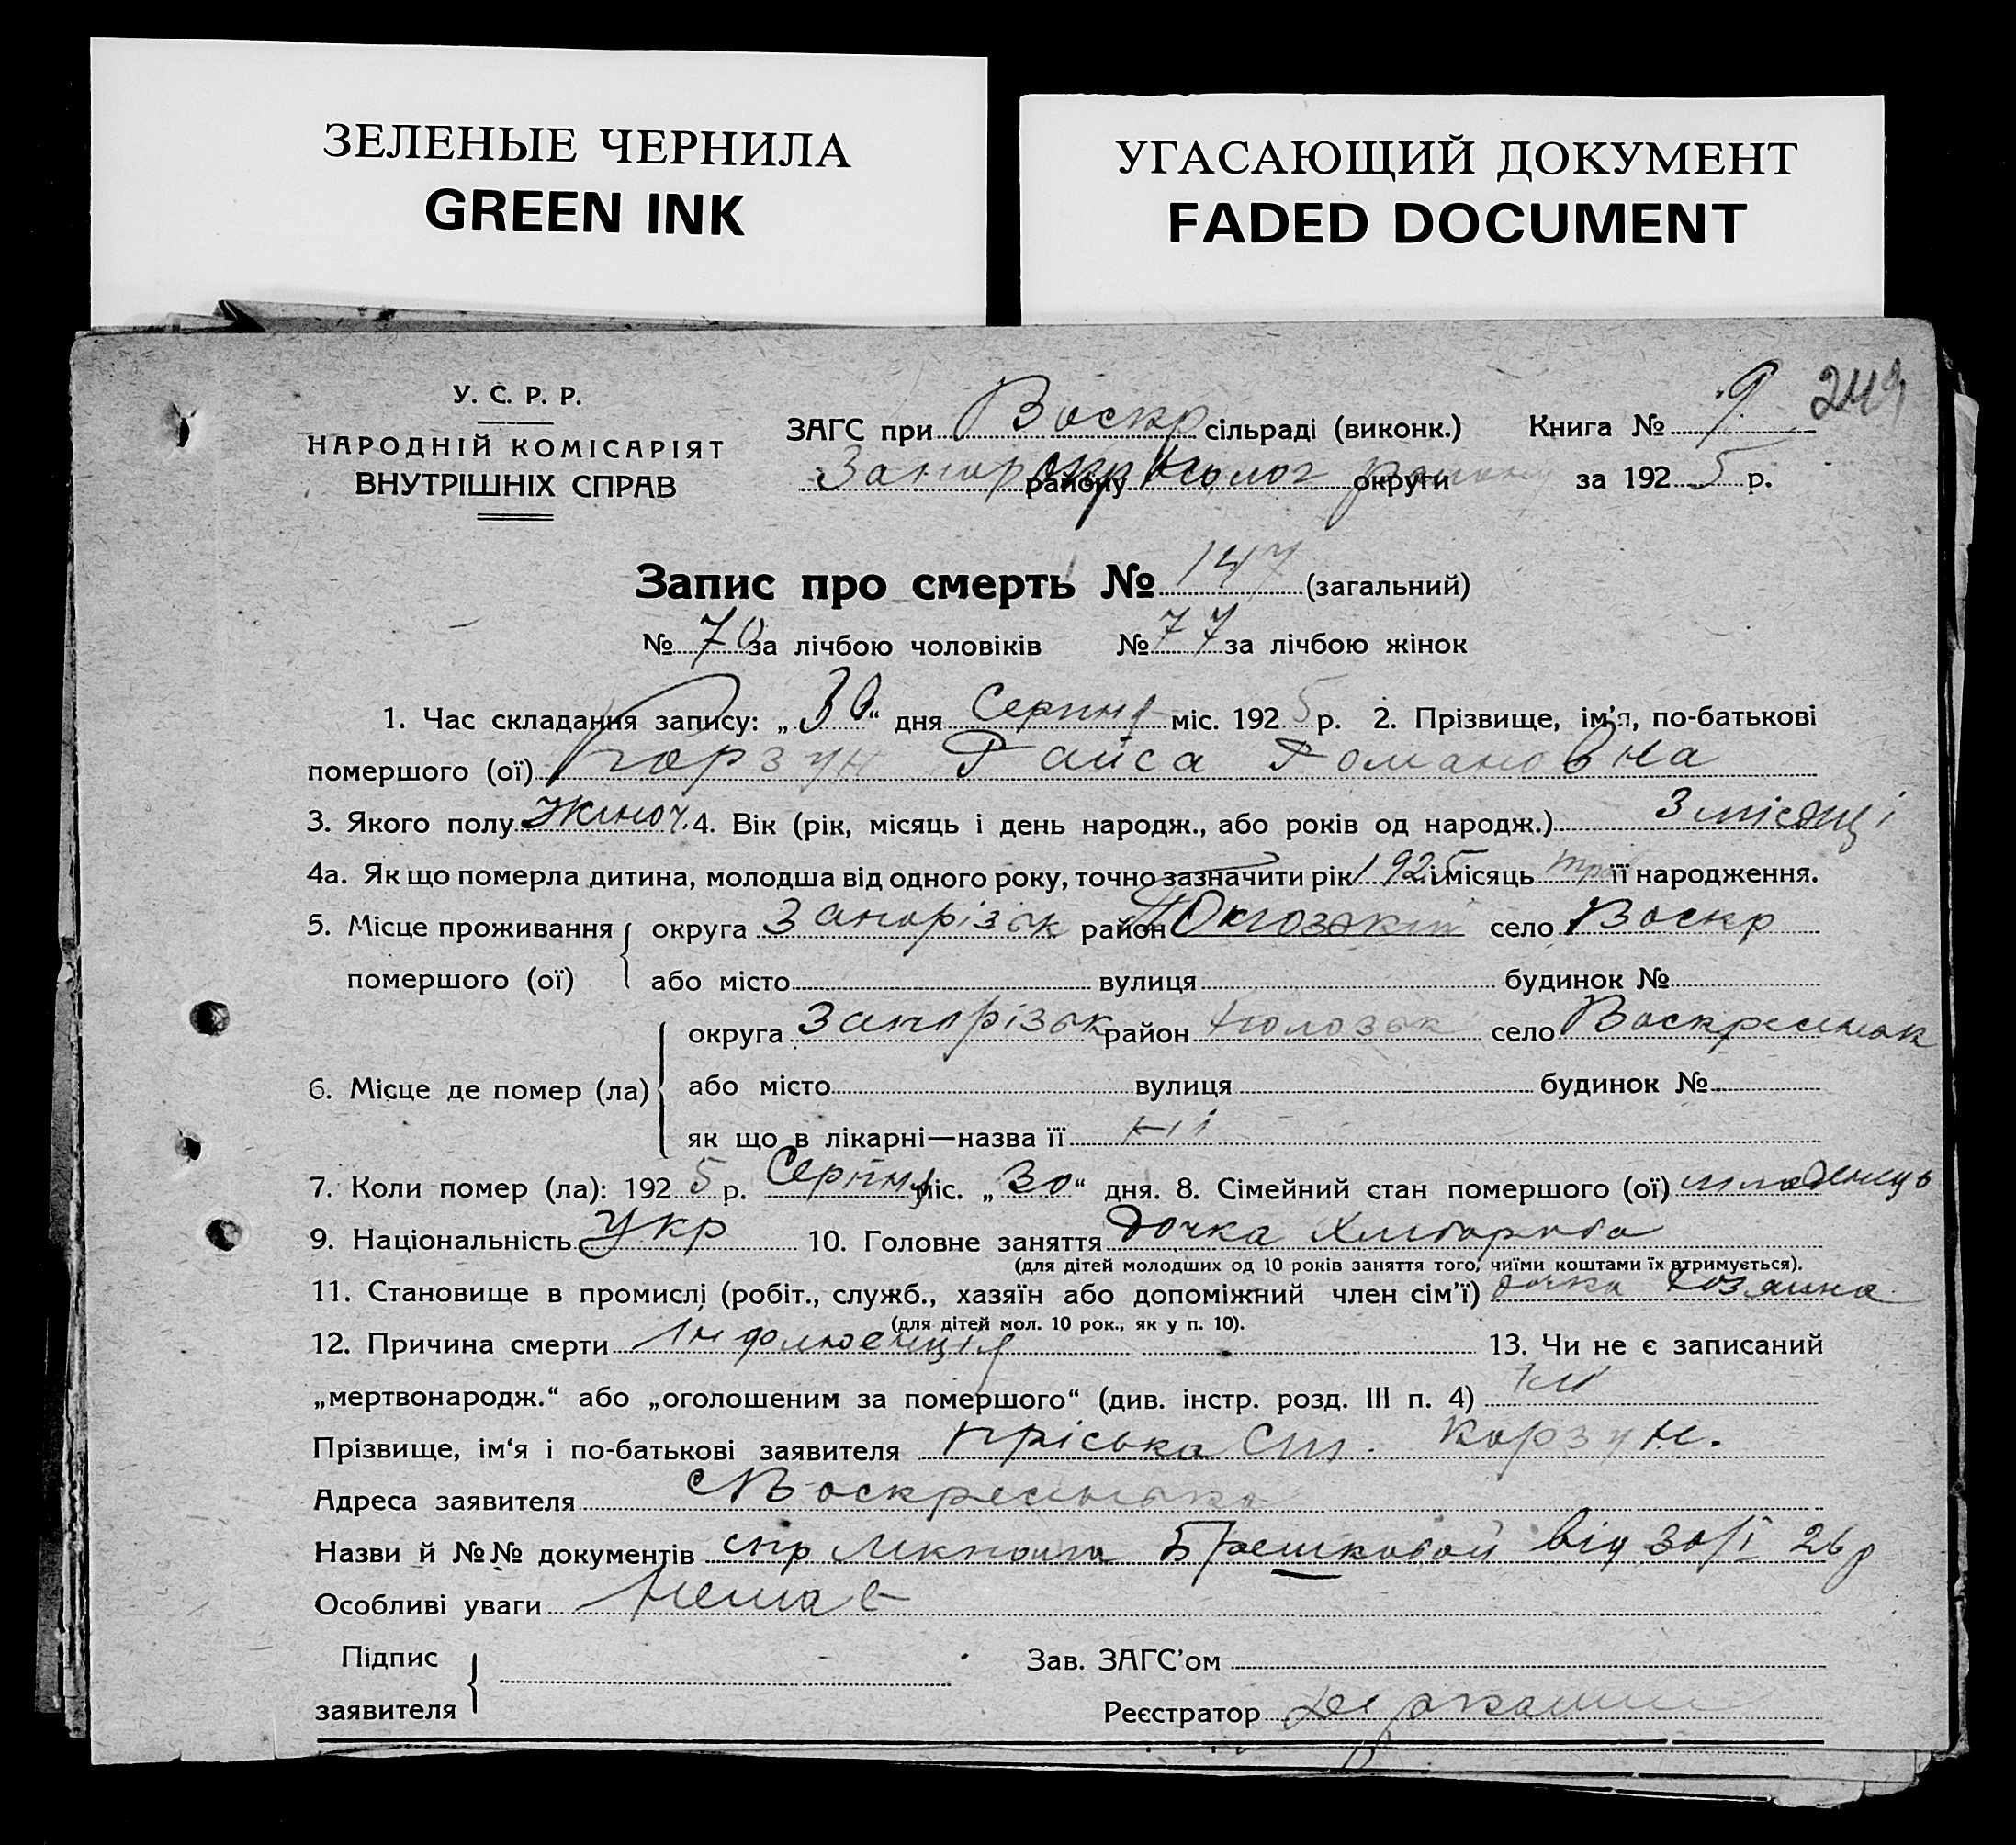 ЗЕЛЕНЫЕ ЧЕРНИЛА
GREEN INK
УГАСАЮЩИЙ ДОКУМЕНТ
FADED DOCUMENT
У. С. Р. Р.
НАРОДНІЙ КОМІСАРІЯТ
ВНУТРІШНІХ СПРАВ
ЗАГС при Воскр сільраді (виконк.) Книга № 9 249
району округи за 1925 р.
Запис про смерть № 147 (загальний)
№ 70 за лічбою чоловіків № 77 за лічбою жінок
1. Час складання запису: „30“ дня Серпня міс. 1925 р. 2. Прізвище, ім'я, по-батькові
помершого (ої) Корзун Раиса Романовна
3. Якого полу Жіноч. 4. Вік (рік, місяць і день народж., або років од народж.) 3 місяці
4а. Як що померла дитина, молодша від одного року, точно зазначити рік 1925 і місяць її народження.
5. Місце проживання округа Запорізьк район село Воскр
помершого (ої) або місто вулиця будинок №
округа Запорізьк район село
6. Місце де помер (ла) або місто вулиця будинок №
як що в лікарні—назва її ні
7. Коли помер (ла): 1925 р. Серпня міс. „30“ дня. 8. Сімейний стан помершого (ої) младенець
9. Національність Укр 10. Головне заняття дочка Хлібороба
(для дітей молодших од 10 років заняття того, чиїми коштами їх втримується).
11. Становище в промислі (робіт., служб., хазяїн або допоміжний член сім'ї) дочка
(для дітей мол. 10 рок., як у п. 10).
12. Причина смерти Інфлюенція 13. Чи не є записаний
„мертвонародж.“ або „оголошеним за помершого“ (див. інстр. розд. III п. 4) ні
Прізвище, ім‘я і по-батькові заявителя Пріська Ст. Корзун.
Адреса заявителя
Назви й №№ документів спр від 30/I 26 р
Особливі уваги Немає
Підпис
заявителя
Зав. ЗАГС'ом
Реєстратор